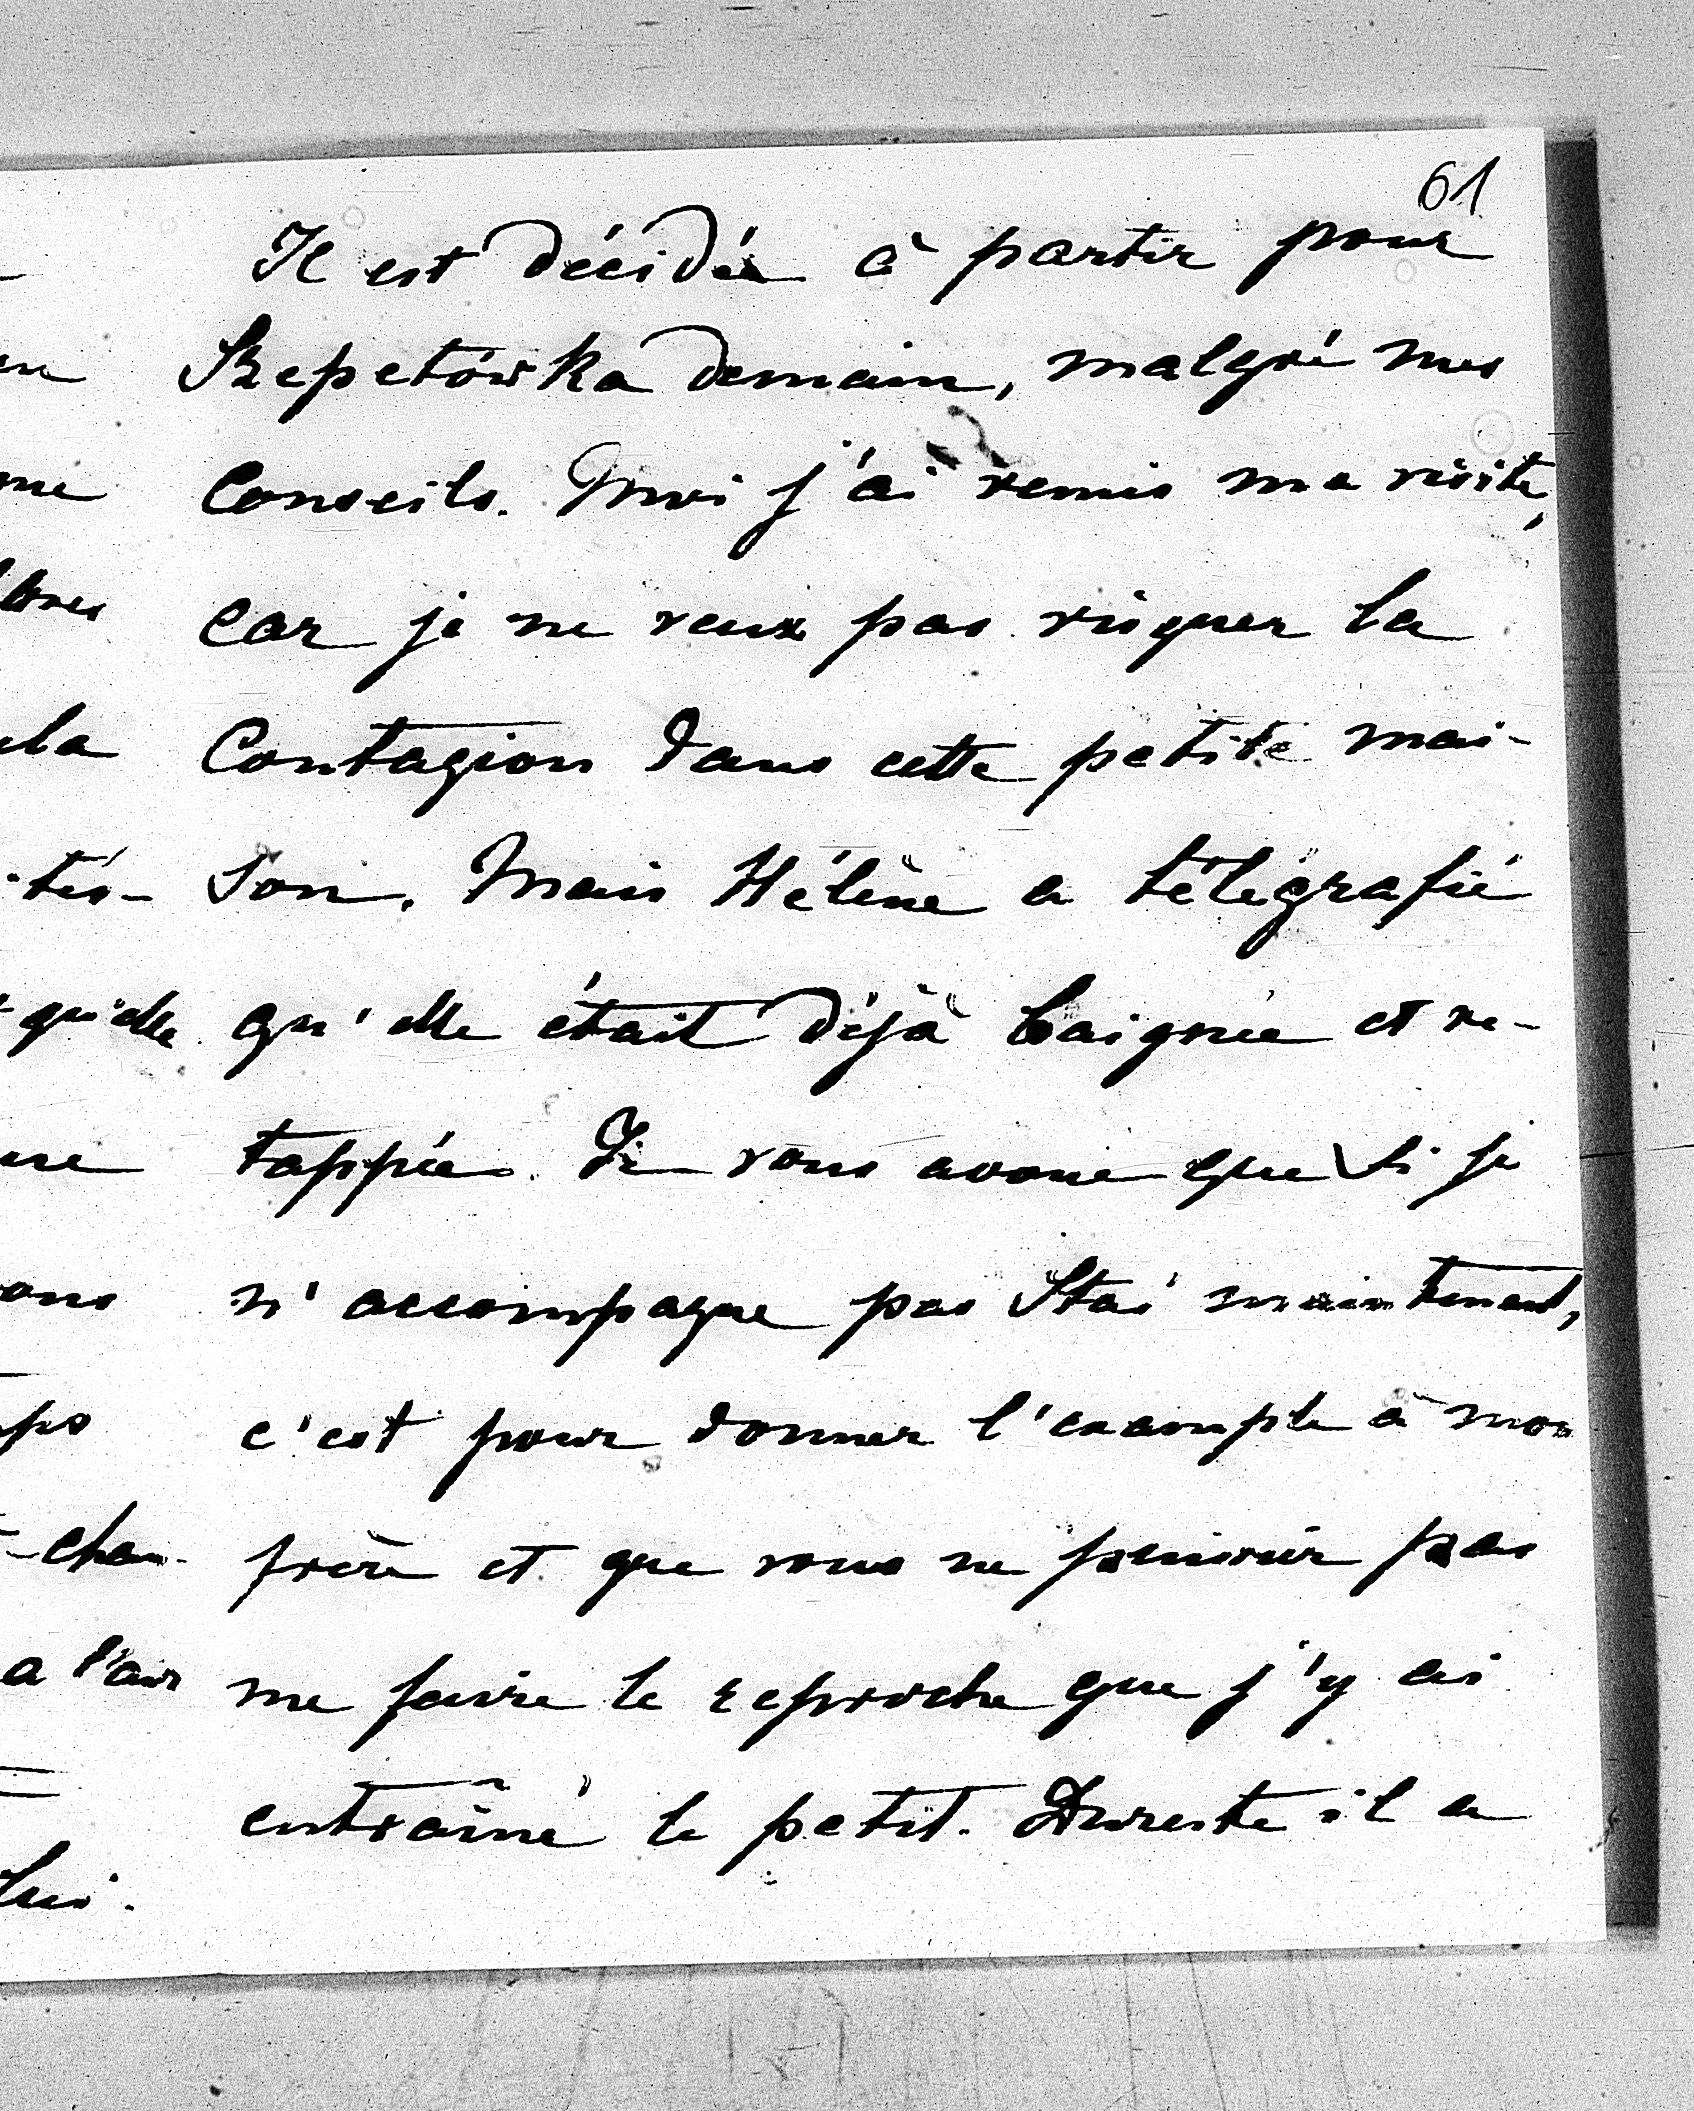 61
Il est décidé à partir pour
Szepetówka demain, malgré mes
conseils. Moi j'ai remis ma visite,
car je ne veux pas risquer la
contagion dans cette petite mai-
son. Mais Hélène a télégrafié
qu'elle était déjà baignée et re-
tappée. Je vous avoue que si je
n'accompagne pas Staś maintenant,
c'est pour donner l'exemple à mon
frère et que vous ne puissiez pas
me faire le reproche que j'y ai
entraîné le petit. Dureste il a
la
qu'elle
a l'air
lui.